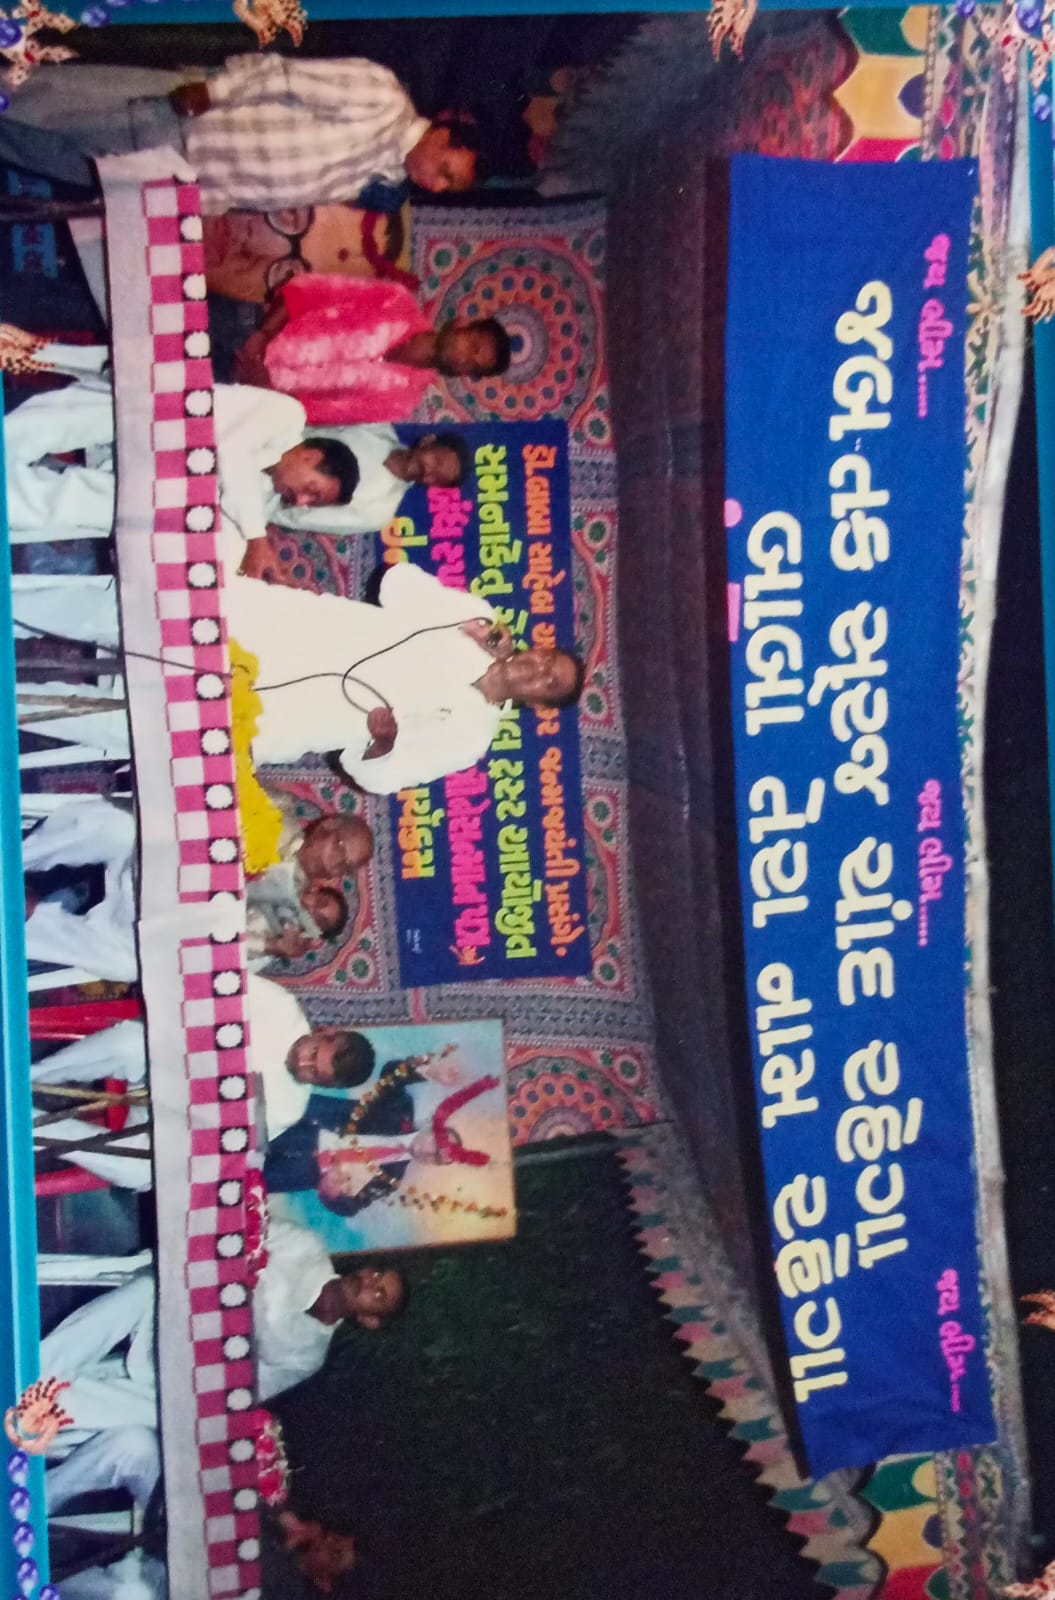 જય ભીમ..... જય ભીમ..... જય ભીમ.....
જબ તક સૂરજ ચાંદ રહેગા
બાબા તેરા નામ રહેગા
ડૉ.બાબા સાહેબ જન્મજયંતી પ્રસંગે.
સમનાકેતુ ટ્રસ્ટ આયોજીત
સન્માન પત્ર